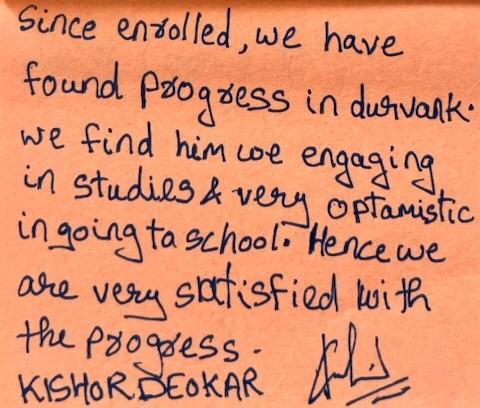 Since enrolled, we have
found Progress in durvank.
we find him woe engaging
in studies & very optamistic
in going to school. Hence we
are very satisfied with
the progress.
KISHOR DEOKAR